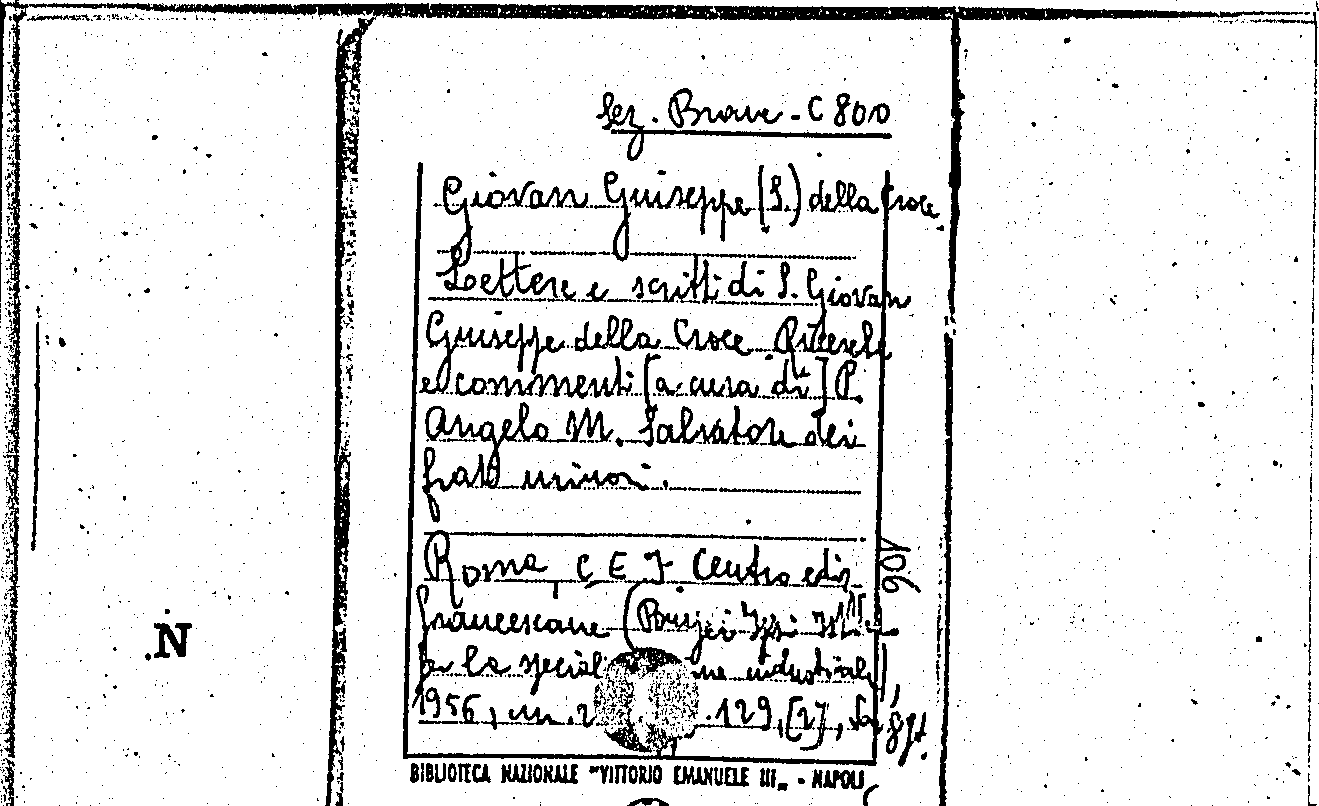 Sez. Brave - C 800
Giovan Giuseppe (S.) della Croce.
Lettere e scritti di S. Giovan
Giuseppe della Croce. Ricerche
e commenti [a cura di] P.
Angelo M. Salvatore dei
frati minori.
Roma, C E F Centro ediz.
904
francescane
N
per la
industriale),
1956, in
129, [2],
BIBLIOTECA NAZIONALE "VITTORIO EMANUELE III„ - NAPOLI